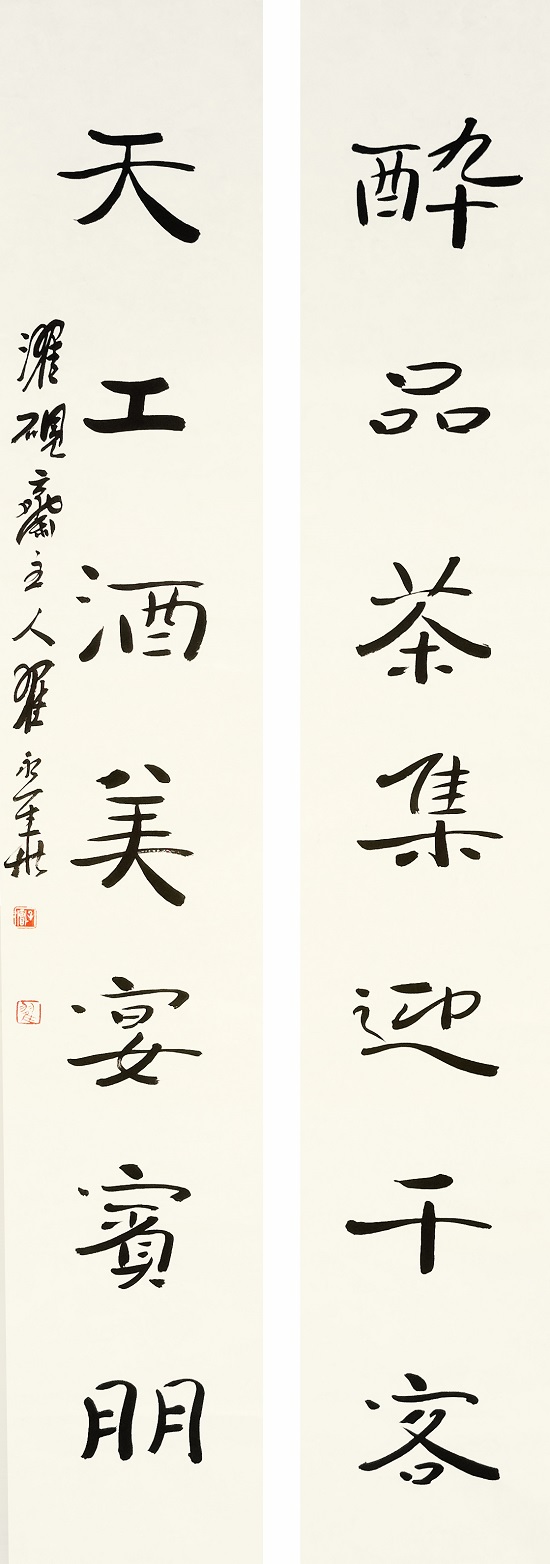 酔品茶集迎千客
天工酒美宴賓朋
濯硯齋主人翟永華